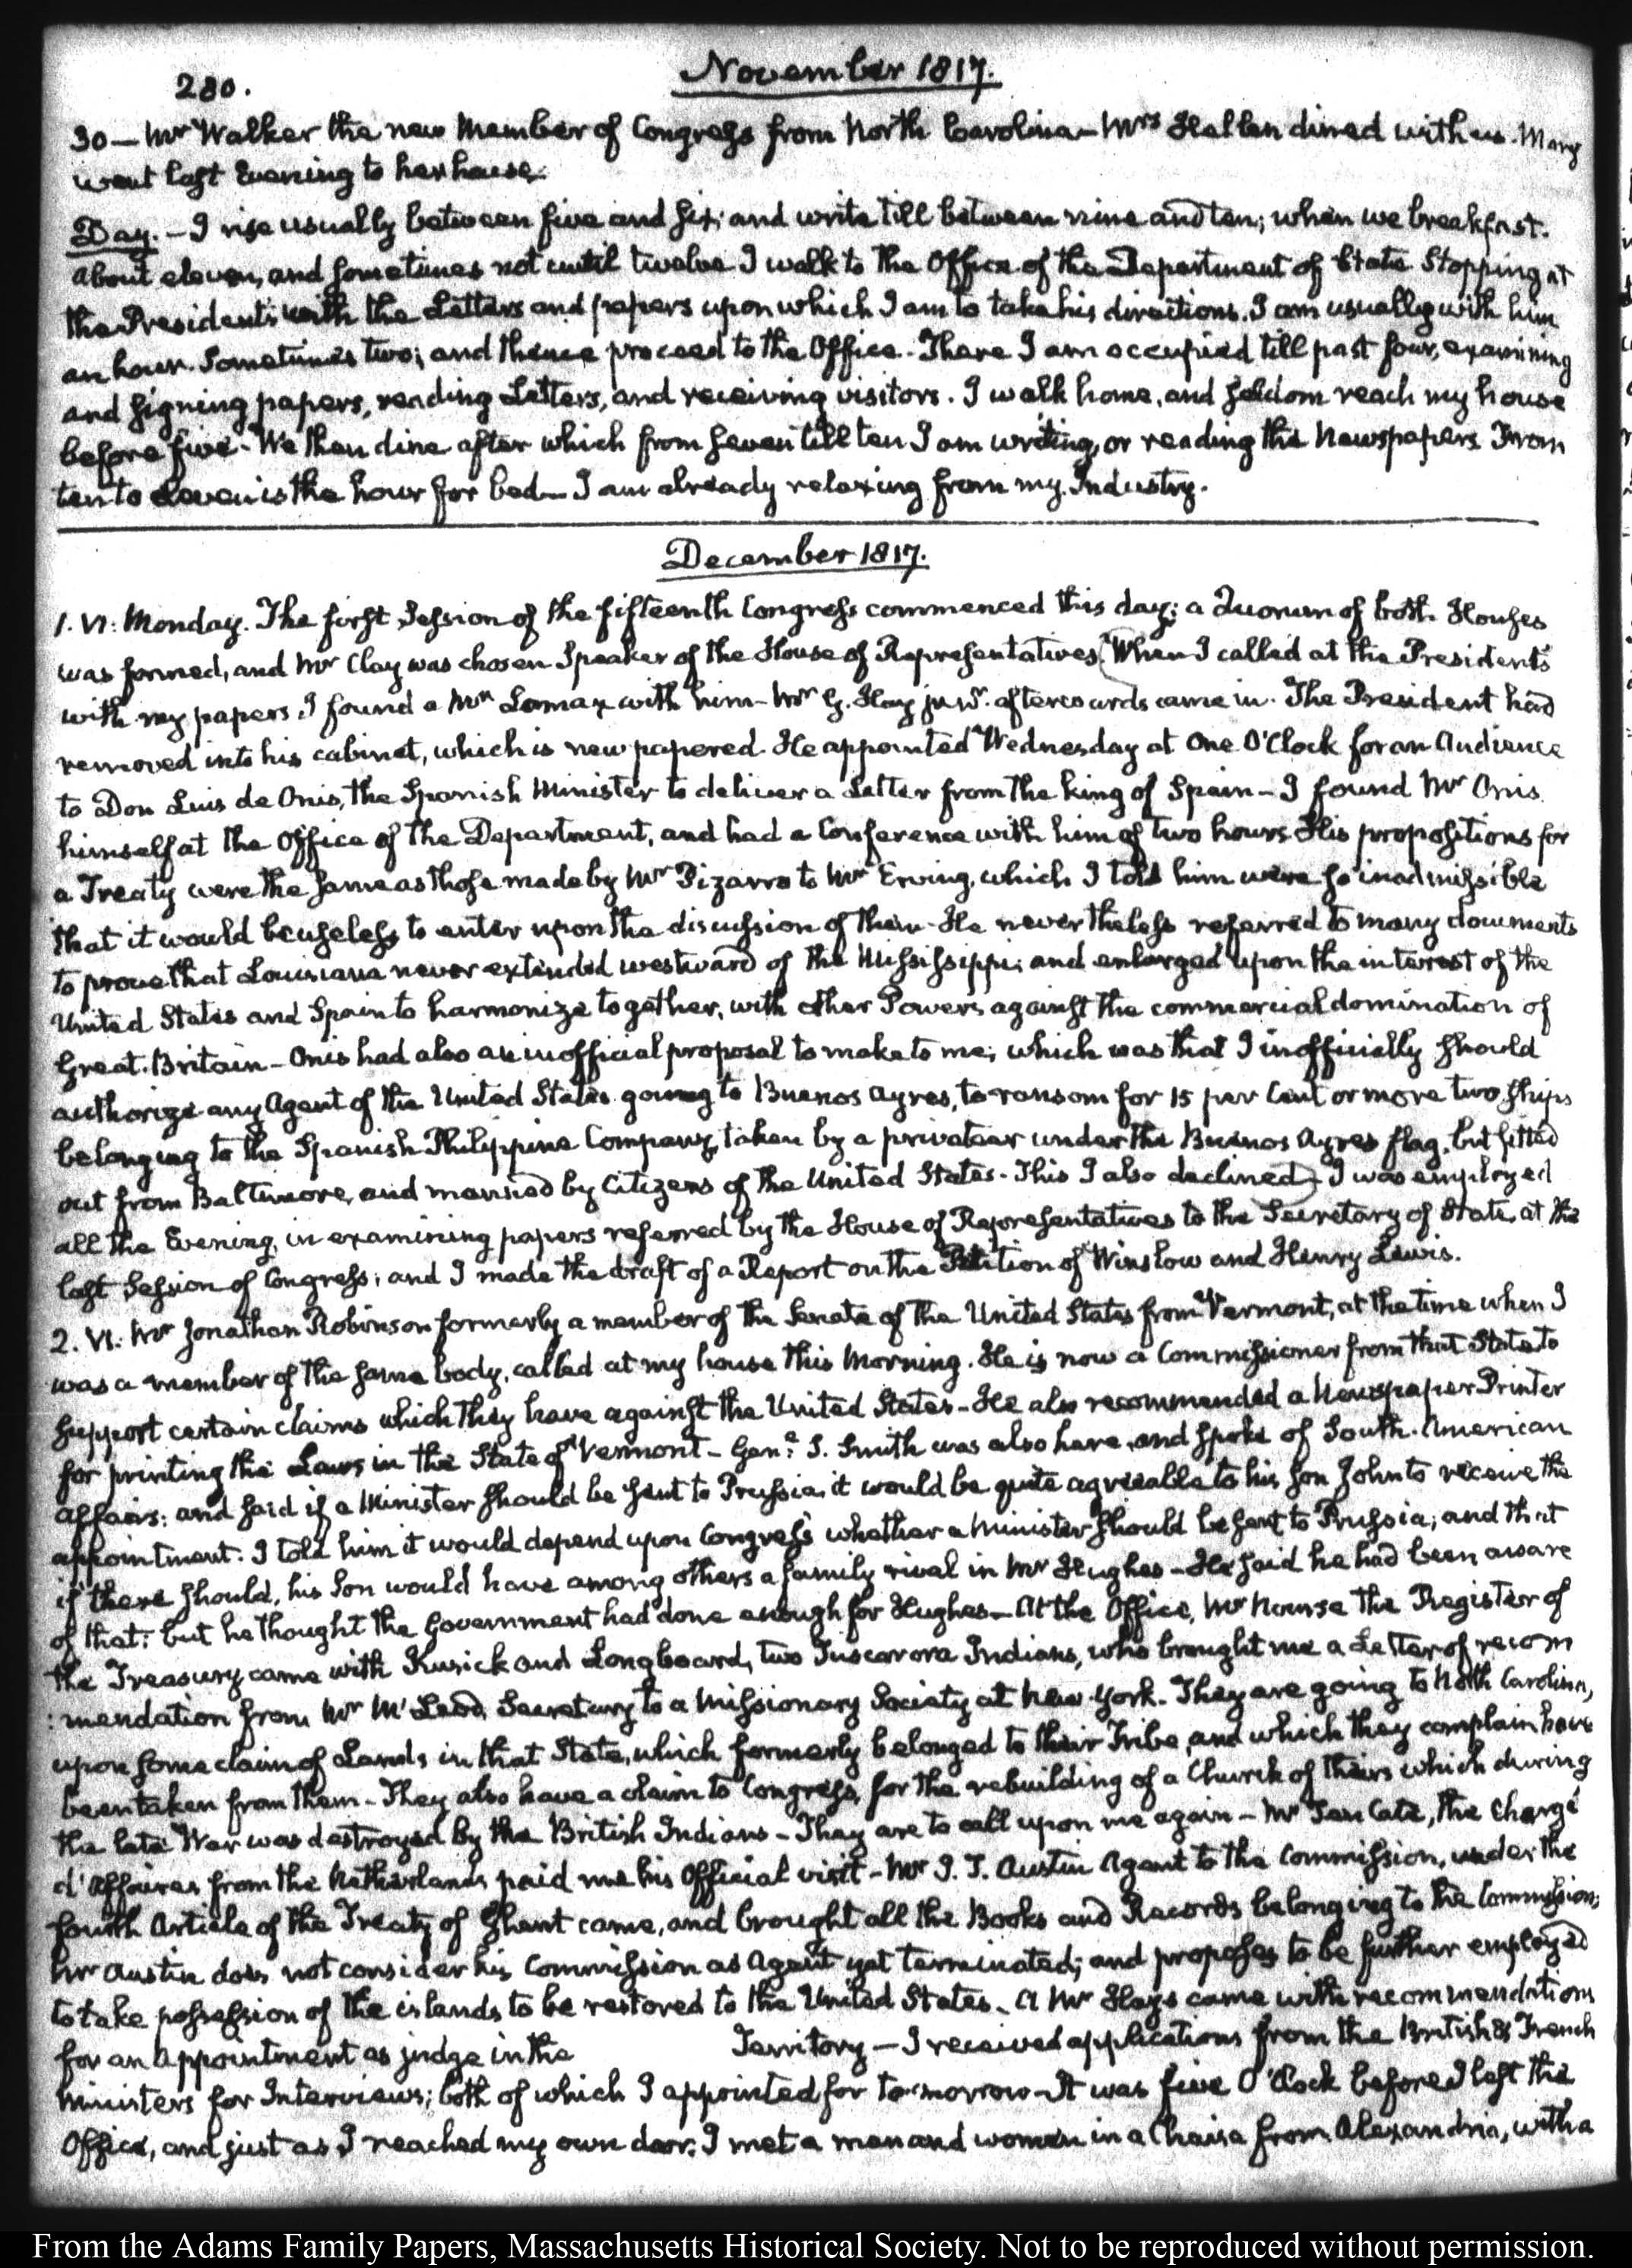 280.
November 1817.
30 — Mr Walker the new Member of Congress from North Carolina — Mrs Hellen dined with us. Mary
went last Evening to her house.
Day. — I rise usually between five and six; and write till between nine and ten; when we breakfast.
About eleven, and sometimes not until twelve I walk to the Office of the Department of State stopping at
the President's with the Letters and papers upon which I am to take his directions. I am usually with him
an hour. Sometimes two; and thence proceed to the Office. There I am occupied till past four, examining
and signing papers, reading Letters, and receiving visitors. I walk home, and seldom reach my house
before five. We then dine after which from seven till ten I am writing, or reading the Newspapers. From
ten to Eleven is the hour for bed — I am already relaxing from my Industry.
December 1817.
1. VI: Monday. The first Session of the fifteenth Congress commenced this day; a Quorum of both Houses
was formed, and Mr Clay was chosen Speaker of the House of Representatives. When I called at the President's
with my papers, I found a Mr Lomax with him — Mr G. Hay junr. afterwards came in. The President had
removed into his cabinet, which is new papered. He appointed Wednesday at One O'Clock for an Audience
to Don Luis de Onis, the Spanish Minister to deliver a Letter from the king of Spain — I found Mr Onis
himself at the Office of the Department, and had a Conference with him of two hours. His propositions for
a Treaty were the same as those made by Mr Pizarro to Mr Erving, which I told him were so inadmissible
that it would be useless to enter upon the discussion of them. He nevertheless referred to many documents
to prove that Louisiana never extended westward of the Mississippi; and enlarged upon the interest of the
United States and Spain to harmonize together, with other Powers against the commercial domination of
Great-Britain — Onis had also an inofficial proposal to make to me; which was that I inofficially should
authorize any Agent of the United States going to Buenos Ayres, to ransom for 15 per Cent or more two ships
belonging to the Spanish Philippine Company, taken by a privateer under the Buenos Ayres flag, but fitted
out from Baltimore, and manned by Citizens of the United States. This I also declined. I was employed
all the Evening, in examining papers referred by the House of Representatives to the Secretary of State, at the
last Session of Congress; and I made the draft of a Report on the Petition of Winslow and Henry Lewis.
2. VI. Mr Jonathan Robinson formerly a member of the Senate of the United States from Vermont, at the time when I
was a member of the same body, called at my house this Morning. He is now a Commissioner from that State to
support certain claims which they have against the United States — He also recommended a Newspaper Printer
for printing the Laws in the State of Vermont — Genl. S. Smith was also here, and spoke of South-American
affairs: and said if a Minister should be sent to Prussia, it would be quite agreeable to his Son John to receive the
appointment. I told him it would depend upon Congress whether a Minister should be sent to Prussia; and that
if there should, his Son would have among others a family rival in Mr Hughes — He said he had been aware
of that: but he thought the Government had done enough for Hughes — At the Office, Mr Nourse the Register of
the Treasury came with Kusick and Longboard, two Tuscarora Indians, who brought me a Letter of recom
:mendation from Mr McLeod, Secretary to a Missionary Society at New-York. They are going to North Carolina,
upon some claim of Lands in that State, which formerly belonged to their Tribe, and which they complain have
been taken from them — They also have a claim to Congress, for the rebuilding of a Church of theirs which during
the late War was destroyed by the British Indians — They are to call upon me again — Mr Ten Cate, the Chargé
d'Affaires from the Netherlands, paid me his Official visit — Mr J. T. Austin Agent to the Commission, under the
fourth Article of the Treaty of Ghent came, and brought all the Books and Records belonging to the Commission;
Mr Austin does not consider his Commission as Agent yet terminated; and proposes to be further employed
to take possession of the islands to be restored to the United States. A Mr Hays came with recommendations
for an Appointment as judge in the Territory — I received applications from the British & French
Ministers for Interviews; both of which I appointed for to-morrow — It was five O'Clock before I left the
Office, and just as I reached my own door; I met a man and woman in a Chaise from Alexandria, with a
From the Adams Family Papers, Massachusetts Historical Society. Not to be reproduced without permission.